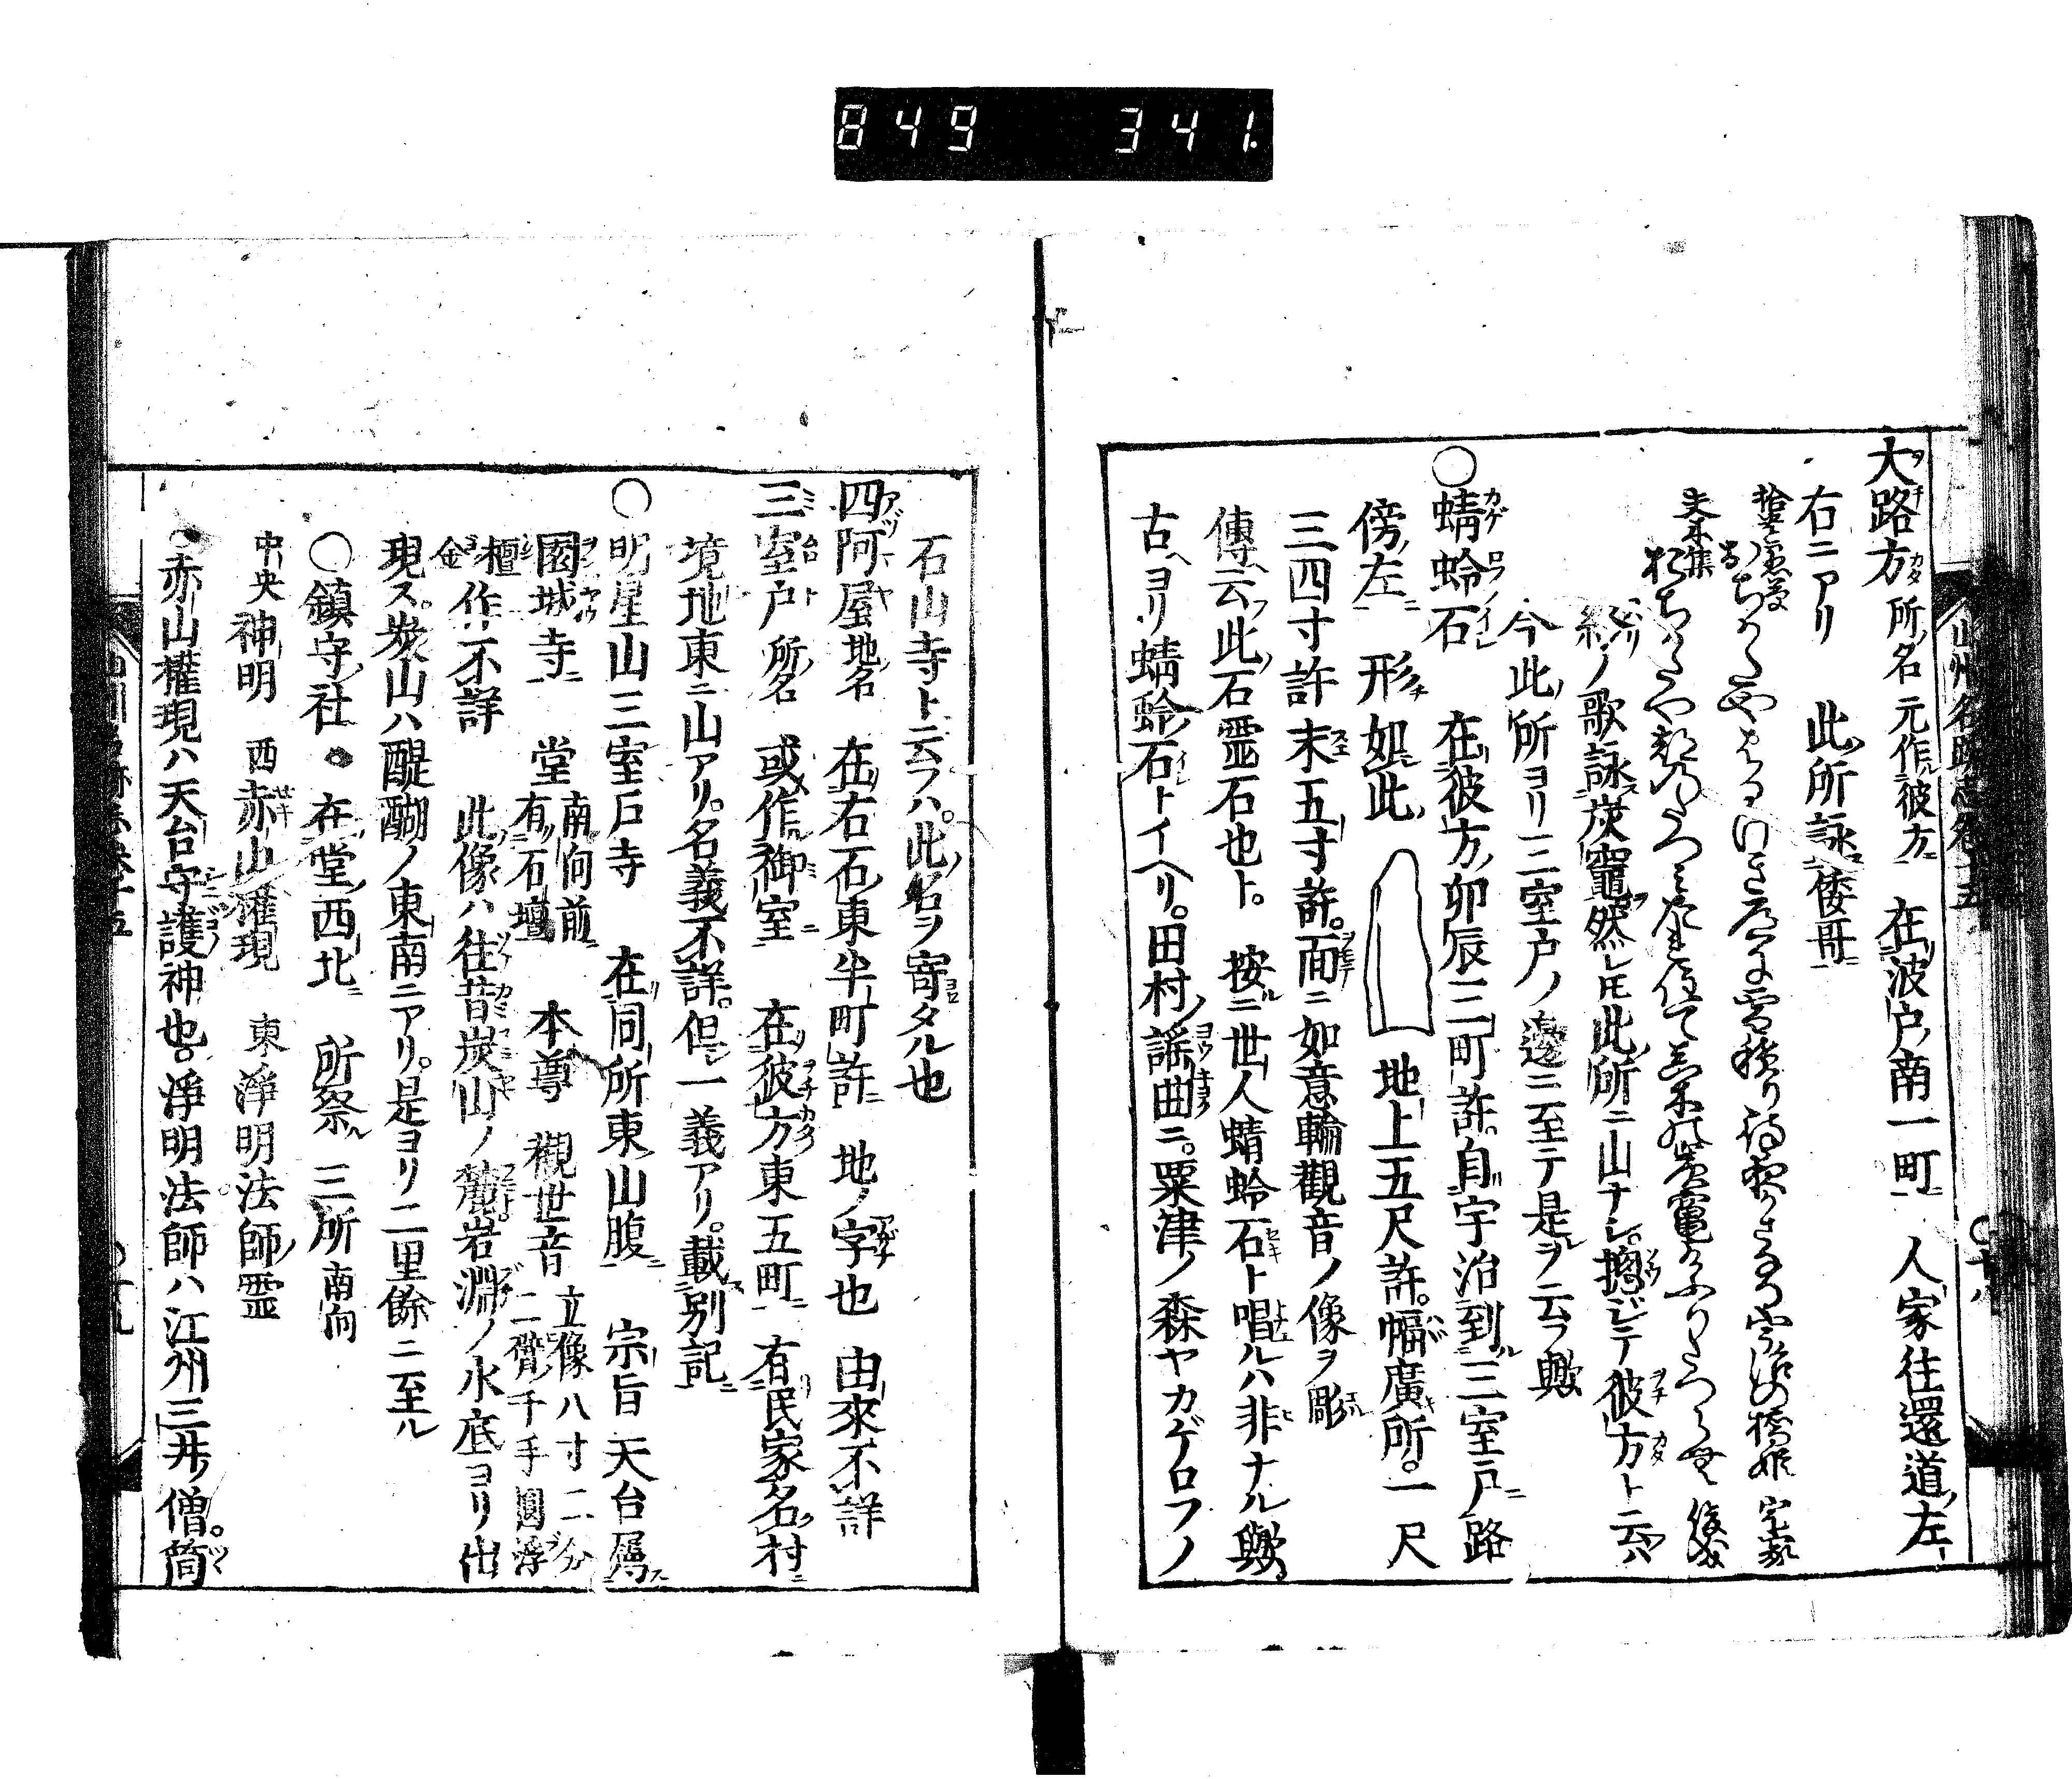 849 341.
山州名跡志卷十五 ○十八
大路方 所名 元作彼方 在波戸南一町 人家往還道左
右ニアリ 此所詠倭哥
拾遺愚草
夫木集
絵ノ歌詠炭竈然レ𪜈此所ニ山ナシ。摠ジテ彼方ト云ハ
今此所ヨリ三室戸ノ邊ニ至テ是ヲ云フ歟
○蜻蛉石 在彼方卯辰三町許。自宇治到三室戸路
傍左 形如此 地上五尺許。幅廣所。一尺
三四寸許末五寸許。面ニ如意輪觀音ノ像ヲ彫
傳云此石霊石也ト。 按ニ世人蜻蛉石ト唱ルハ非ナル歟
古ヨリ蜻蛉石トイヘリ。田村謡曲ニ。粟津ノ森ヤカゲロフノ
石山寺ト云フハ。此名ヲ寄タル也
四阿屋 地名 在右石東半町許 地ノ字也 由來不詳
三室戸 所名 或作御室 在彼方東五町 有民家名村
境地東ニ山アリ。名義不詳。但一義アリ。載別記
○明星山三室戸寺 在同所東山腹 宗旨天台屬
園城寺 堂 南向前有石壇 本尊 觀世音 立像八寸二分二臂千手圓浮
檀金 作不詳 此像ハ往昔炭山ノ麓。岩淵ノ水底ヨリ出
現ス。炭山ハ醍醐ノ東南ニアリ。是ヨリ二里餘ニ至ル
○鎮守社 ●在堂西北 所祭三所 南向
中央 神明 西 赤山權現 東 淨明法師霊
●赤山權現ハ天台守護神也。淨明法師ハ江州三井僧。筒